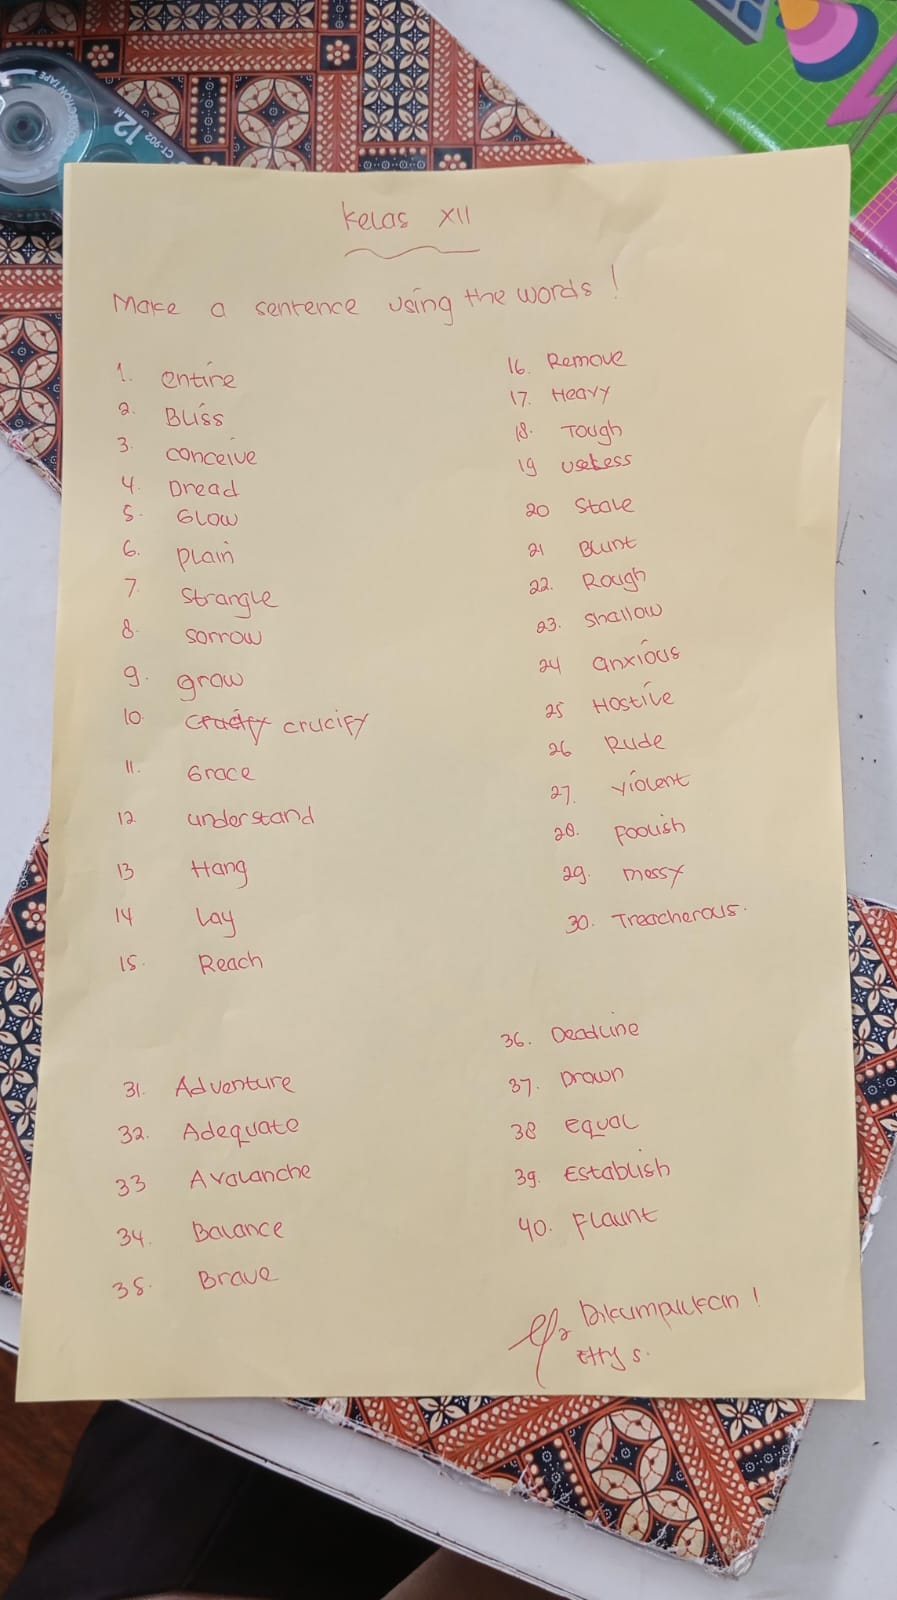 CORRECTION TAPE
CT-902
12M
Kelas XII
Make a sentence using the words !
1. entire
2. Bliss
3. conceive
4. Dread
5. Glow
6. plain
7. Strangle
8. sorrow
9. grow
10. crucify crucify
11. Grace
12 understand
13 Hang
14 Lay
15. Reach
16. Remove
17. Heavy
18. Tough
19 useless
20 Stale
21 Blunt
22. Rough
23. shallow
24 anxious
25 Hostile
26 Rude
27. violent
28. Foolish
29. messy
30. Treacherous.
31. Adventure
32. Adequate
33 Avalanche
34. Balance
35. Brave
36. Deadline
37. Drown
38 equal
39. Establish
40. Flaunt
Dikumpulkan !
Etty s.